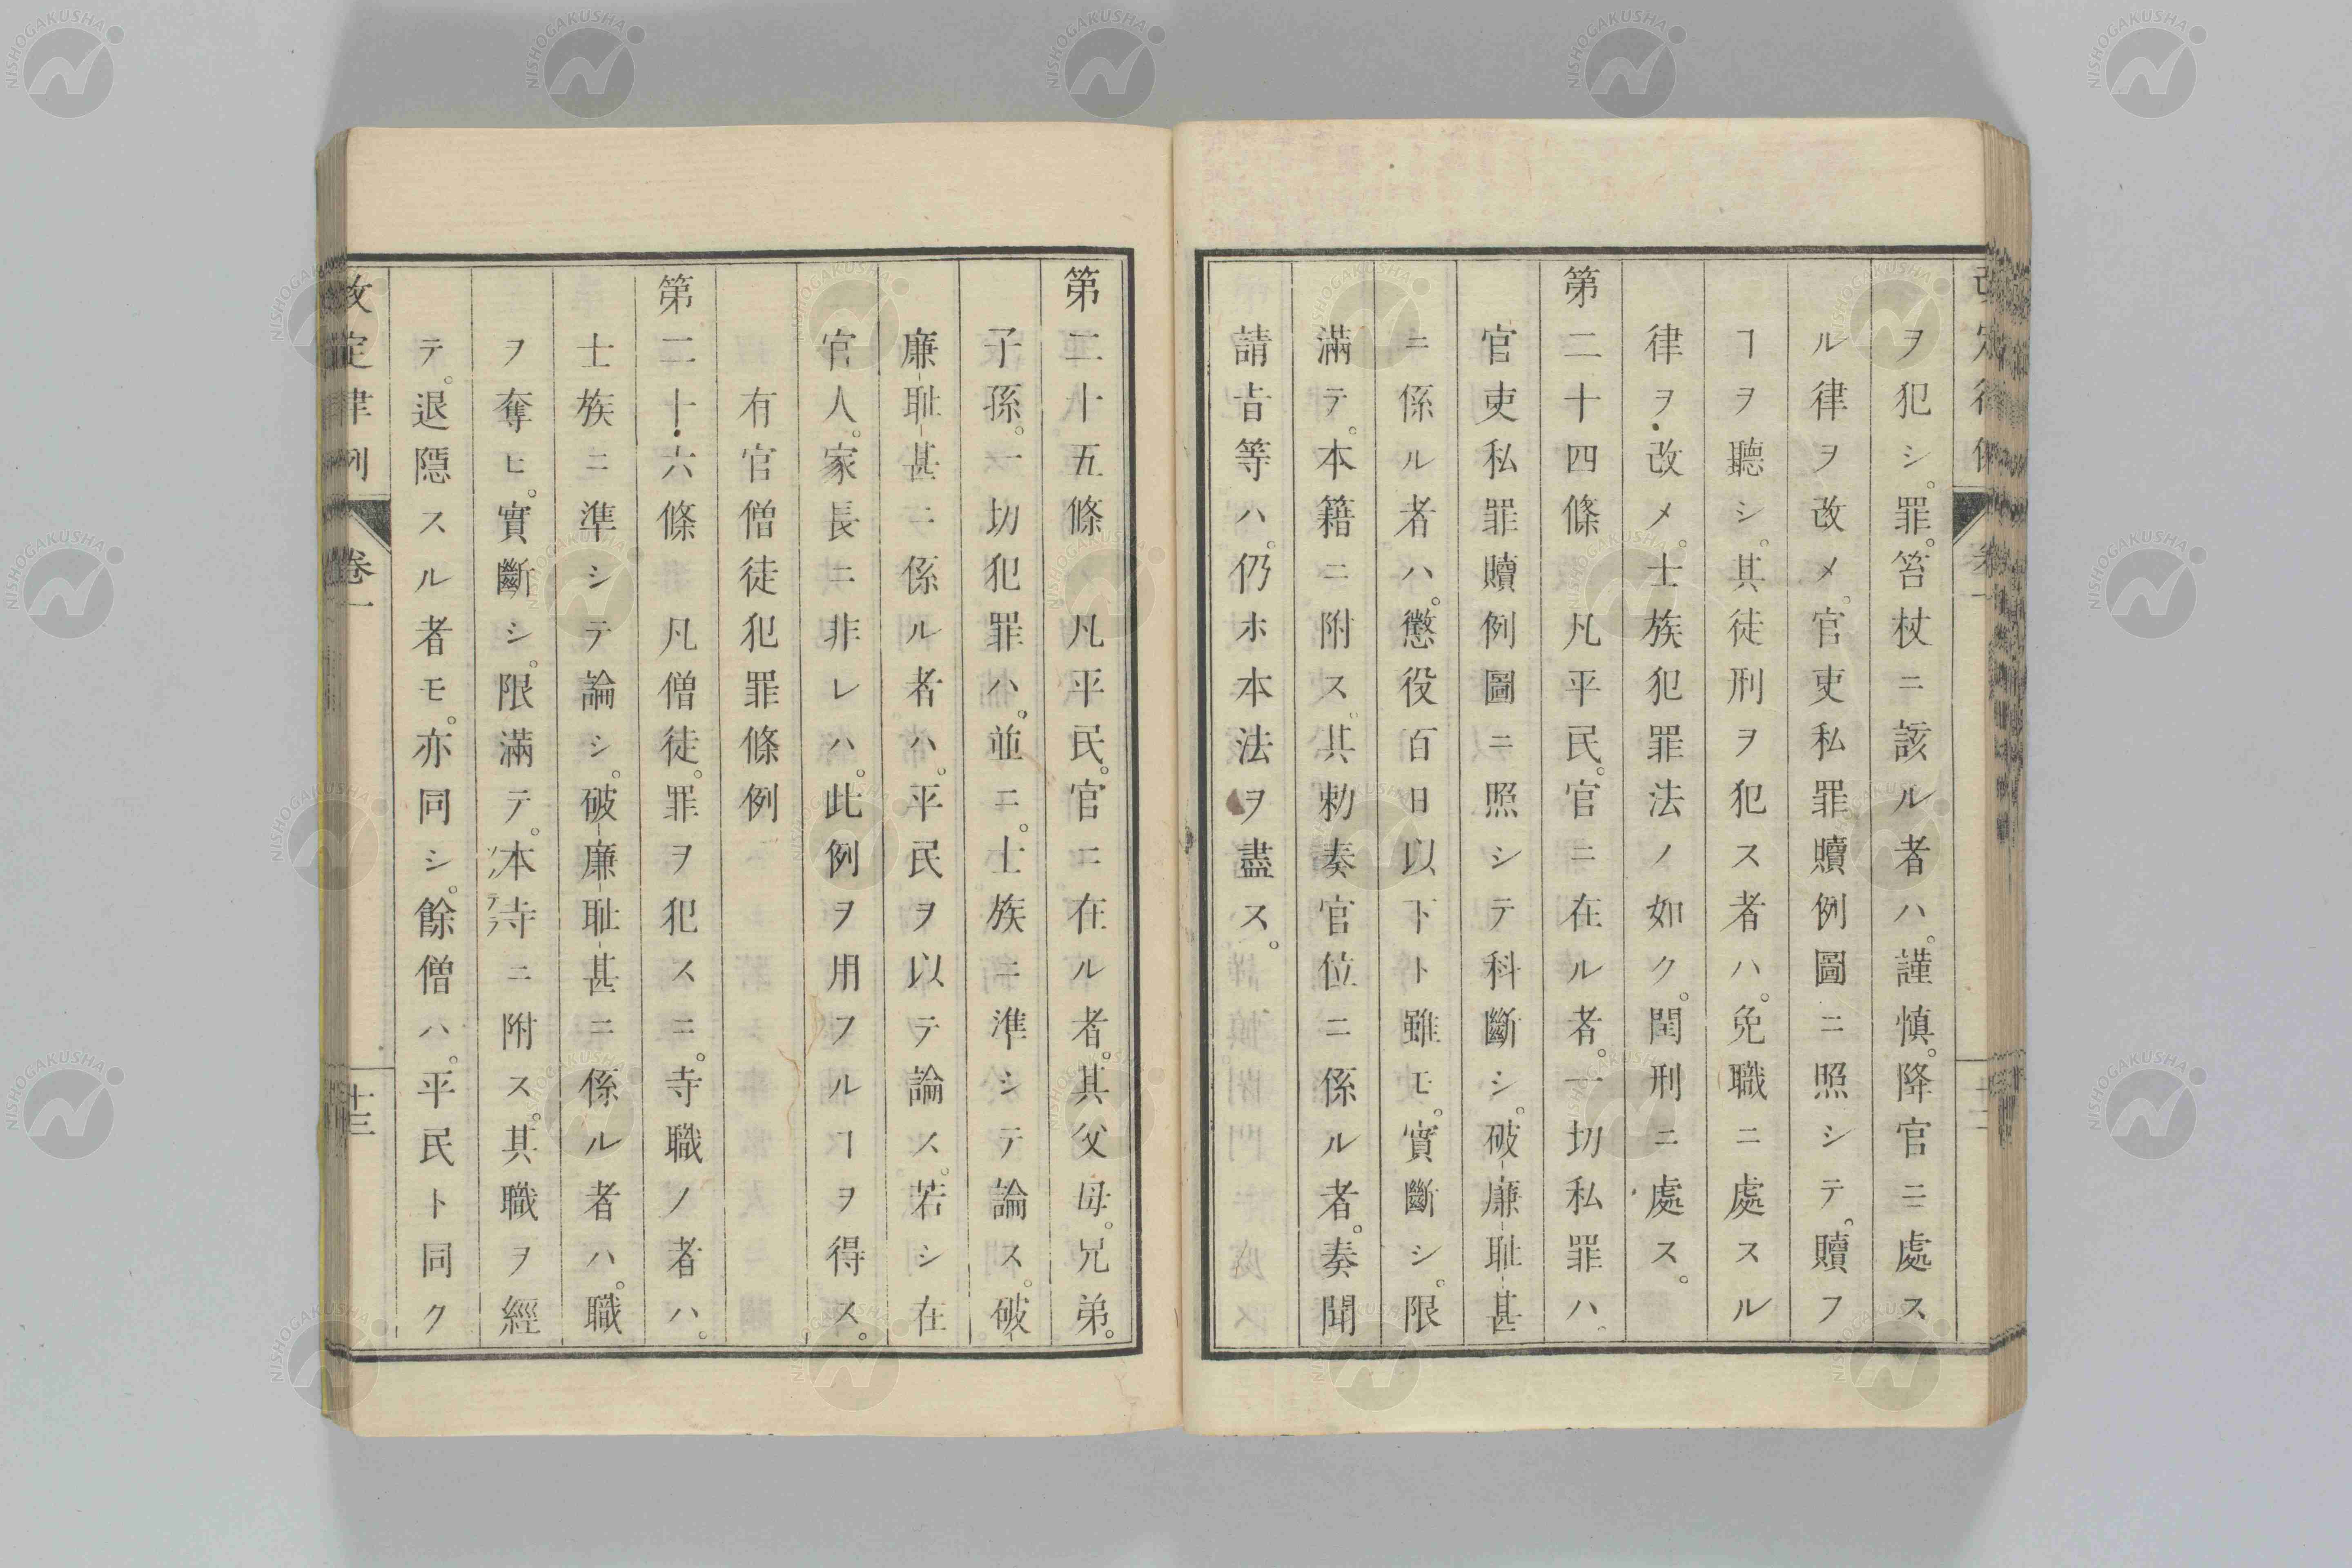 ヲ犯シ。罪。笞杖ニ該ル者ハ。謹愼。降官ニ處ス
ル律ヲ改メ。官吏私罪贖例圖ニ照シテ。贖フ
ヿヲ聽シ。其徒刑ヲ犯ス者ハ。免職ニ處スル
律ヲ改メ。士族犯罪法ノ如ク。閏刑ニ處ス。
第二十四條 凡平民。官ニ在ル者。一切私罪ハ。
官吏私罪贖例圖ニ照シテ科斷シ。破廉耻甚
ニ係ル者ハ。懲役百日以下ト雖モ。實斷シ。限
滿テ。本籍ニ附ス。其勅奏官位ニ係ル者。奏聞
請旨等ハ。仍ホ本法ヲ盡ス。
第二十五條 凡平民。官ニ在ル者。其父母。兄弟。
子孫。一切犯罪ハ。並ニ。士族ニ準シテ論ス。破
廉耻甚ニ係ル者ハ。平民ヲ以テ論ス。若シ在
官人。家長ニ非レハ。此例ヲ用フルヿヲ得ス。
有官僧徒犯罪條例
第二十六條 凡僧徒。罪ヲ犯スニ。寺職ノ者ハ。
士族ニ準シテ論シ。破廉耻甚ニ係ル者ハ。職
ヲ奪ヒ。實斷シ。限滿テ。本寺ニ附ス。其職ヲ經
テ。退隱スル者モ。亦同シ。餘僧ハ。平民ト同ク
改定律例 卷一 十三
NISHOGAKUSHA